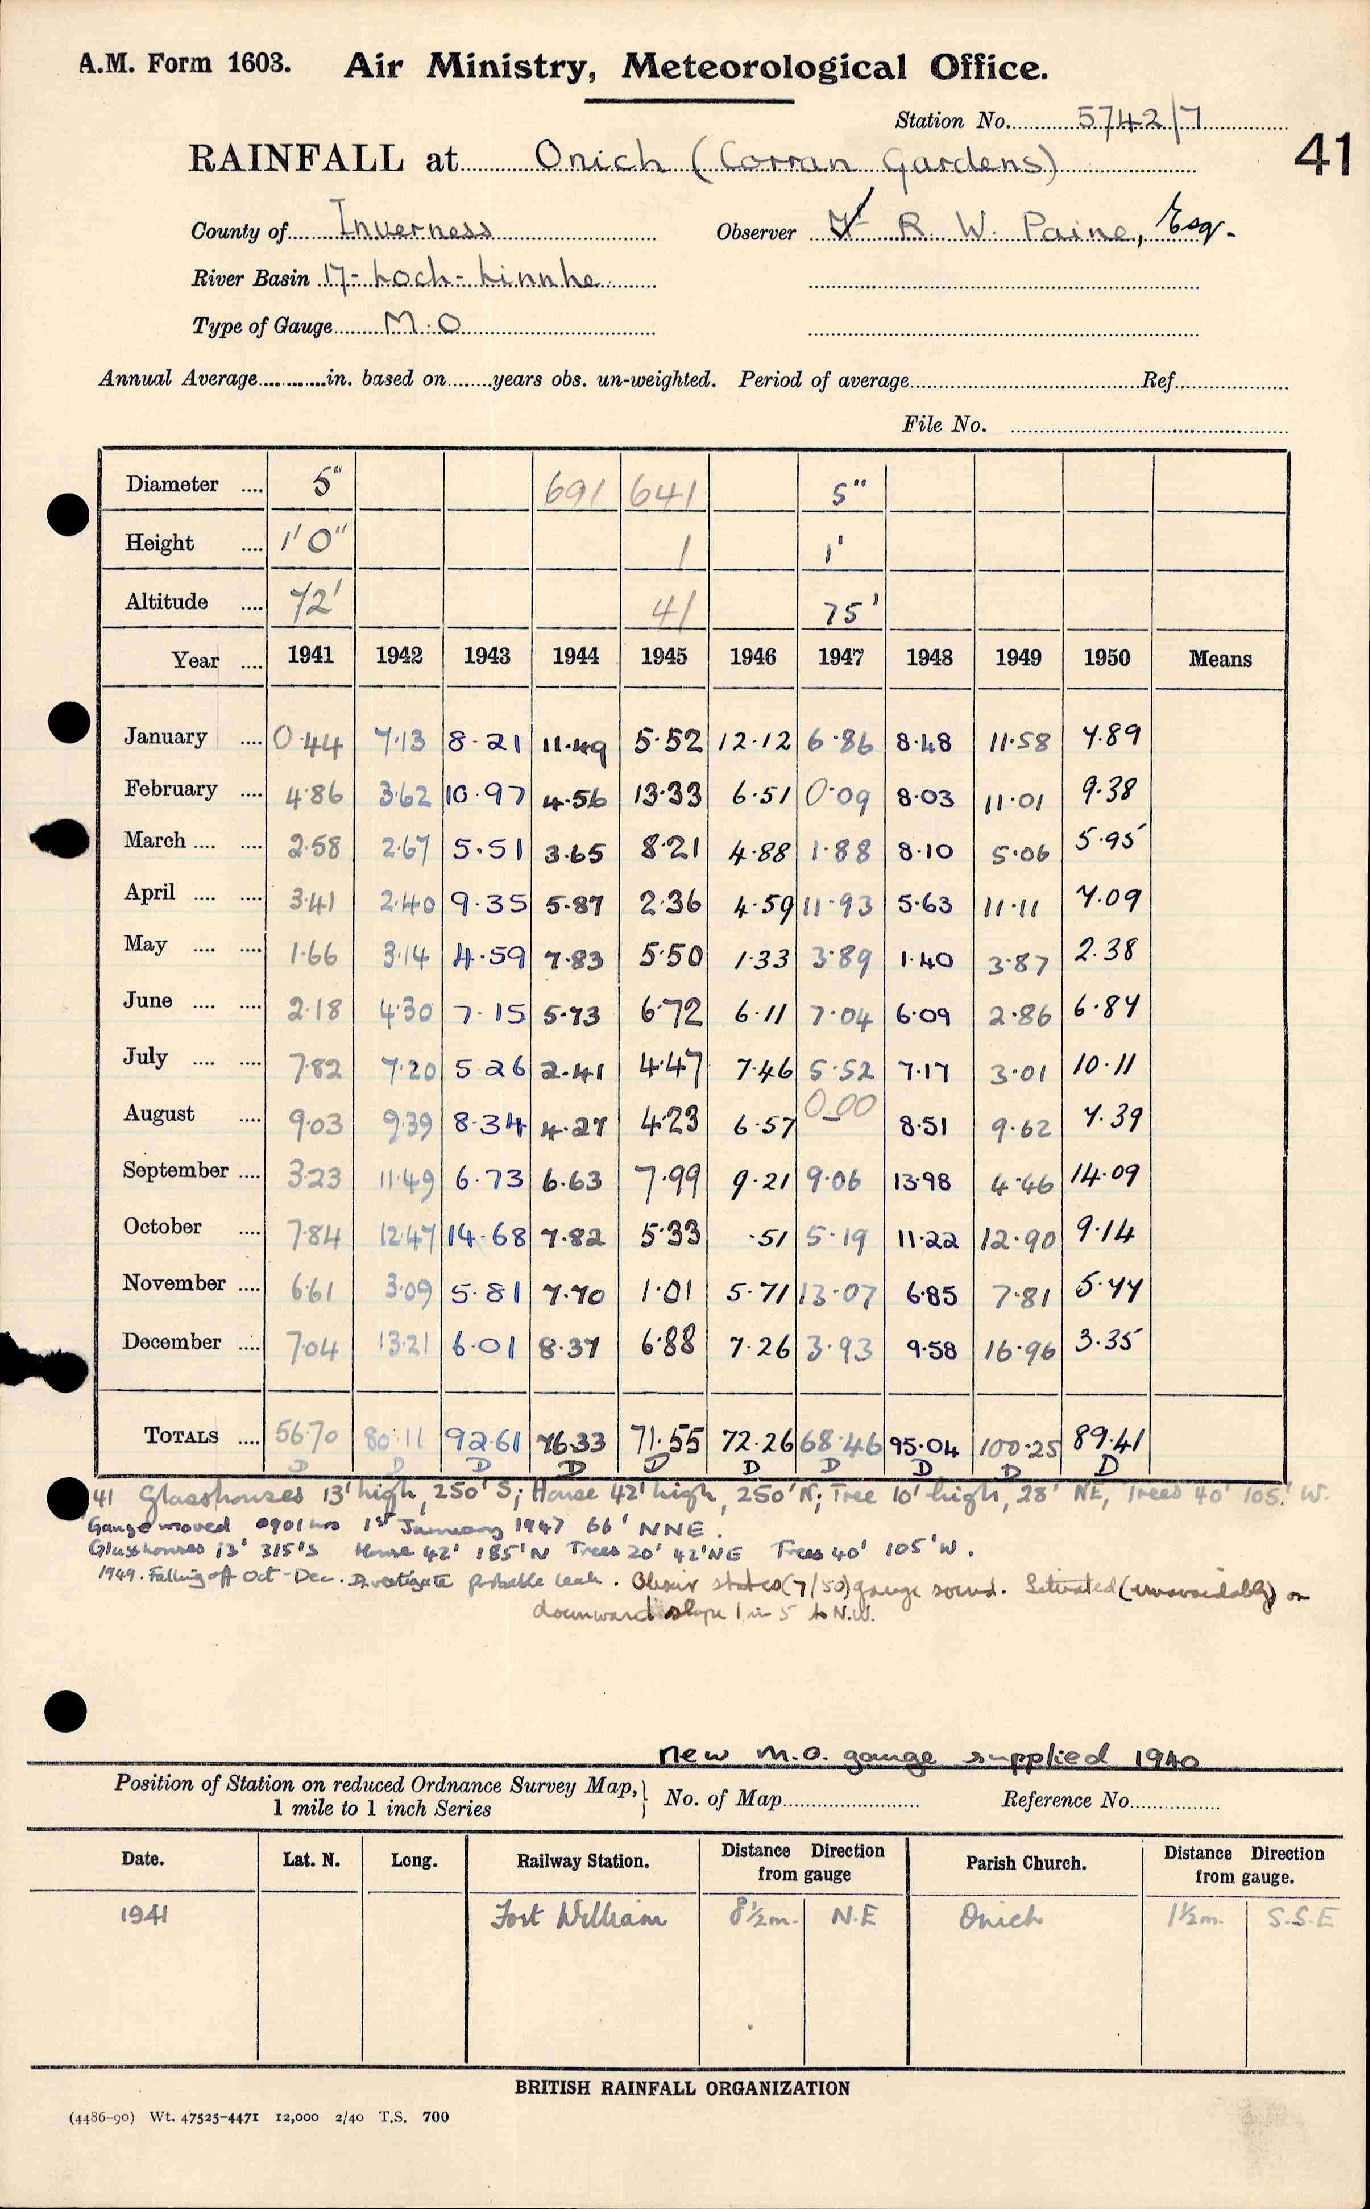 A.M. Form 1603. Air Ministry, Meteorological Office.
Station No. 5742/7
41
RAINFALL at Onich (Corran Gardens)
County of Inverness Observer R. W. Paine, Esq.
River Basin 17-Loch-Linnhe
Type of Gauge M.O
Annual Average in. based on years obs. un-weighted. Period of average Ref.
File No.
Diameter .... 5" 691 641 5"
Height .... 1' 0" 1 1'
Altitude .... 72' 41 75'
Year .... 1941 1942 1943 1944 1945 1946 1947 1948 1949 1950 Means
January .... 0.44 7.13 8.21 11.49 5.52 12.12 6.86 8.48 11.58 7.89
February .... 4.86 3.62 10.97 4.56 13.33 6.51 0.09 8.03 11.01 9.38
March .... .... 2.58 2.67 5.51 3.65 8.21 4.88 1.88 8.10 5.06 5.95
April .... .... 3.41 2.40 9.35 5.87 2.36 4.59 11.93 5.63 11.11 7.09
May .... .... 1.66 3.14 4.59 7.83 5.50 1.33 3.89 1.40 3.87 2.38
June .... .... 2.18 4.30 7.15 5.73 6.72 6.11 7.04 6.09 2.86 6.87
July .... .... 7.82 7.20 5.26 2.41 4.47 7.46 5.52 7.17 3.01 10.11
August .... 9.03 9.39 8.34 4.27 4.23 6.57 0.00 8.51 9.62 7.39
September .... 3.23 11.49 6.73 6.63 7.99 9.21 9.06 13.98 4.46 14.09
October .... 7.84 12.47 14.68 7.82 5.33 .51 5.19 11.22 12.90 9.14
November .... 6.61 3.09 5.81 7.70 1.01 5.71 13.07 6.85 7.81 5.77
December .... 7.04 13.21 6.01 8.37 6.88 7.26 3.93 9.58 16.96 3.35
TOTALS .... 56.70 80.11 92.61 76.33 71.55 72.26 68.46 95.04 100.25 89.41
D D D D D D D D D D
41 Glasshouses 13' high, 250' S; House 42' high, 250' N; Tree 10' high, 28' NE, Trees 40' 105' W.
Gauge moved 0901 hrs 1st January 1947 66' NNE.
Glasshouses 13' 315'S House 42' 185'N Trees 20' 42'NE Trees 40' 105'W.
1949. Falling off Oct-Dec. Investigate probable leak. Obsvr states (7/50) gauge sound. Situated (unavoidably) on
downward slope 1 in 5 to N.W.
new M.O. gauge supplied 1940
Position of Station on reduced Ordnance Survey Map, 1 mile to 1 inch Series } No. of Map Reference No.
Date. Lat. N. Long. Railway Station. Distance Direction from gauge Parish Church. Distance Direction from gauge.
1941 Fort William 8½m. N.E Onich 1½m. S.S.E
BRITISH RAINFALL ORGANIZATION
(4486-90) Wt. 47525-4471 12,000 2/40 T.S. 700